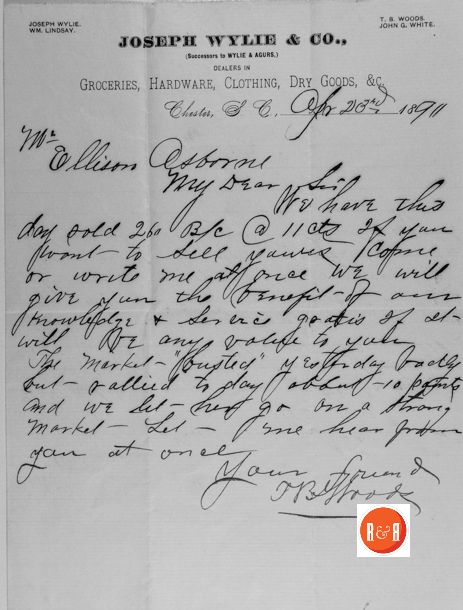 JOSEPH WYLIE.
WM. LINDSAY.
T. B. WOODS.
JOHN G. WHITE.
JOSEPH WYLIE & CO.,
(Successors to WYLIE & AGURS,)
DEALERS IN
GROCERIES, HARDWARE, CLOTHING, DRY GOODS, &c.
Chester, S. C. Apr 23rd 1891
Mr
Ellison Osborne
My Dear Sir
We have this
day sold 260 B/c @ 11 cts If you
want to sell yours come
or write me at once we will
give you the benefit of our
knowledge & service gratis if it
will be any value to you
The market "busted" yesterday badly
but rallied to day about 10 points
and we let her go on a strong
market Let me hear from
you at once
Your friend
T B Woods
R&R